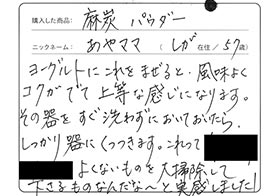 購入した商品: 麻炭 パウダー
ニックネーム: あやママ (しが 在住 / 57歳)
ヨーグルトにこれをまぜると、風味よく
コクがでて上等な感じになります。
その器をすぐ洗わずにおいておいたら、
しっかり器にくっつきます。これって
よくないものを大掃除して
下さるものなんだな〜と実感しました!